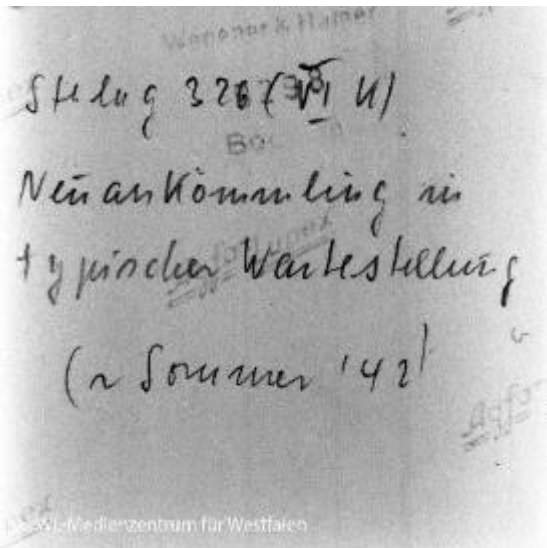 Stalag 326 (VI K)
Neuankömmling in
typischer Wartestellung
(~ Sommer '42)
Agfa
LWL-Medienzentrum für Westfalen